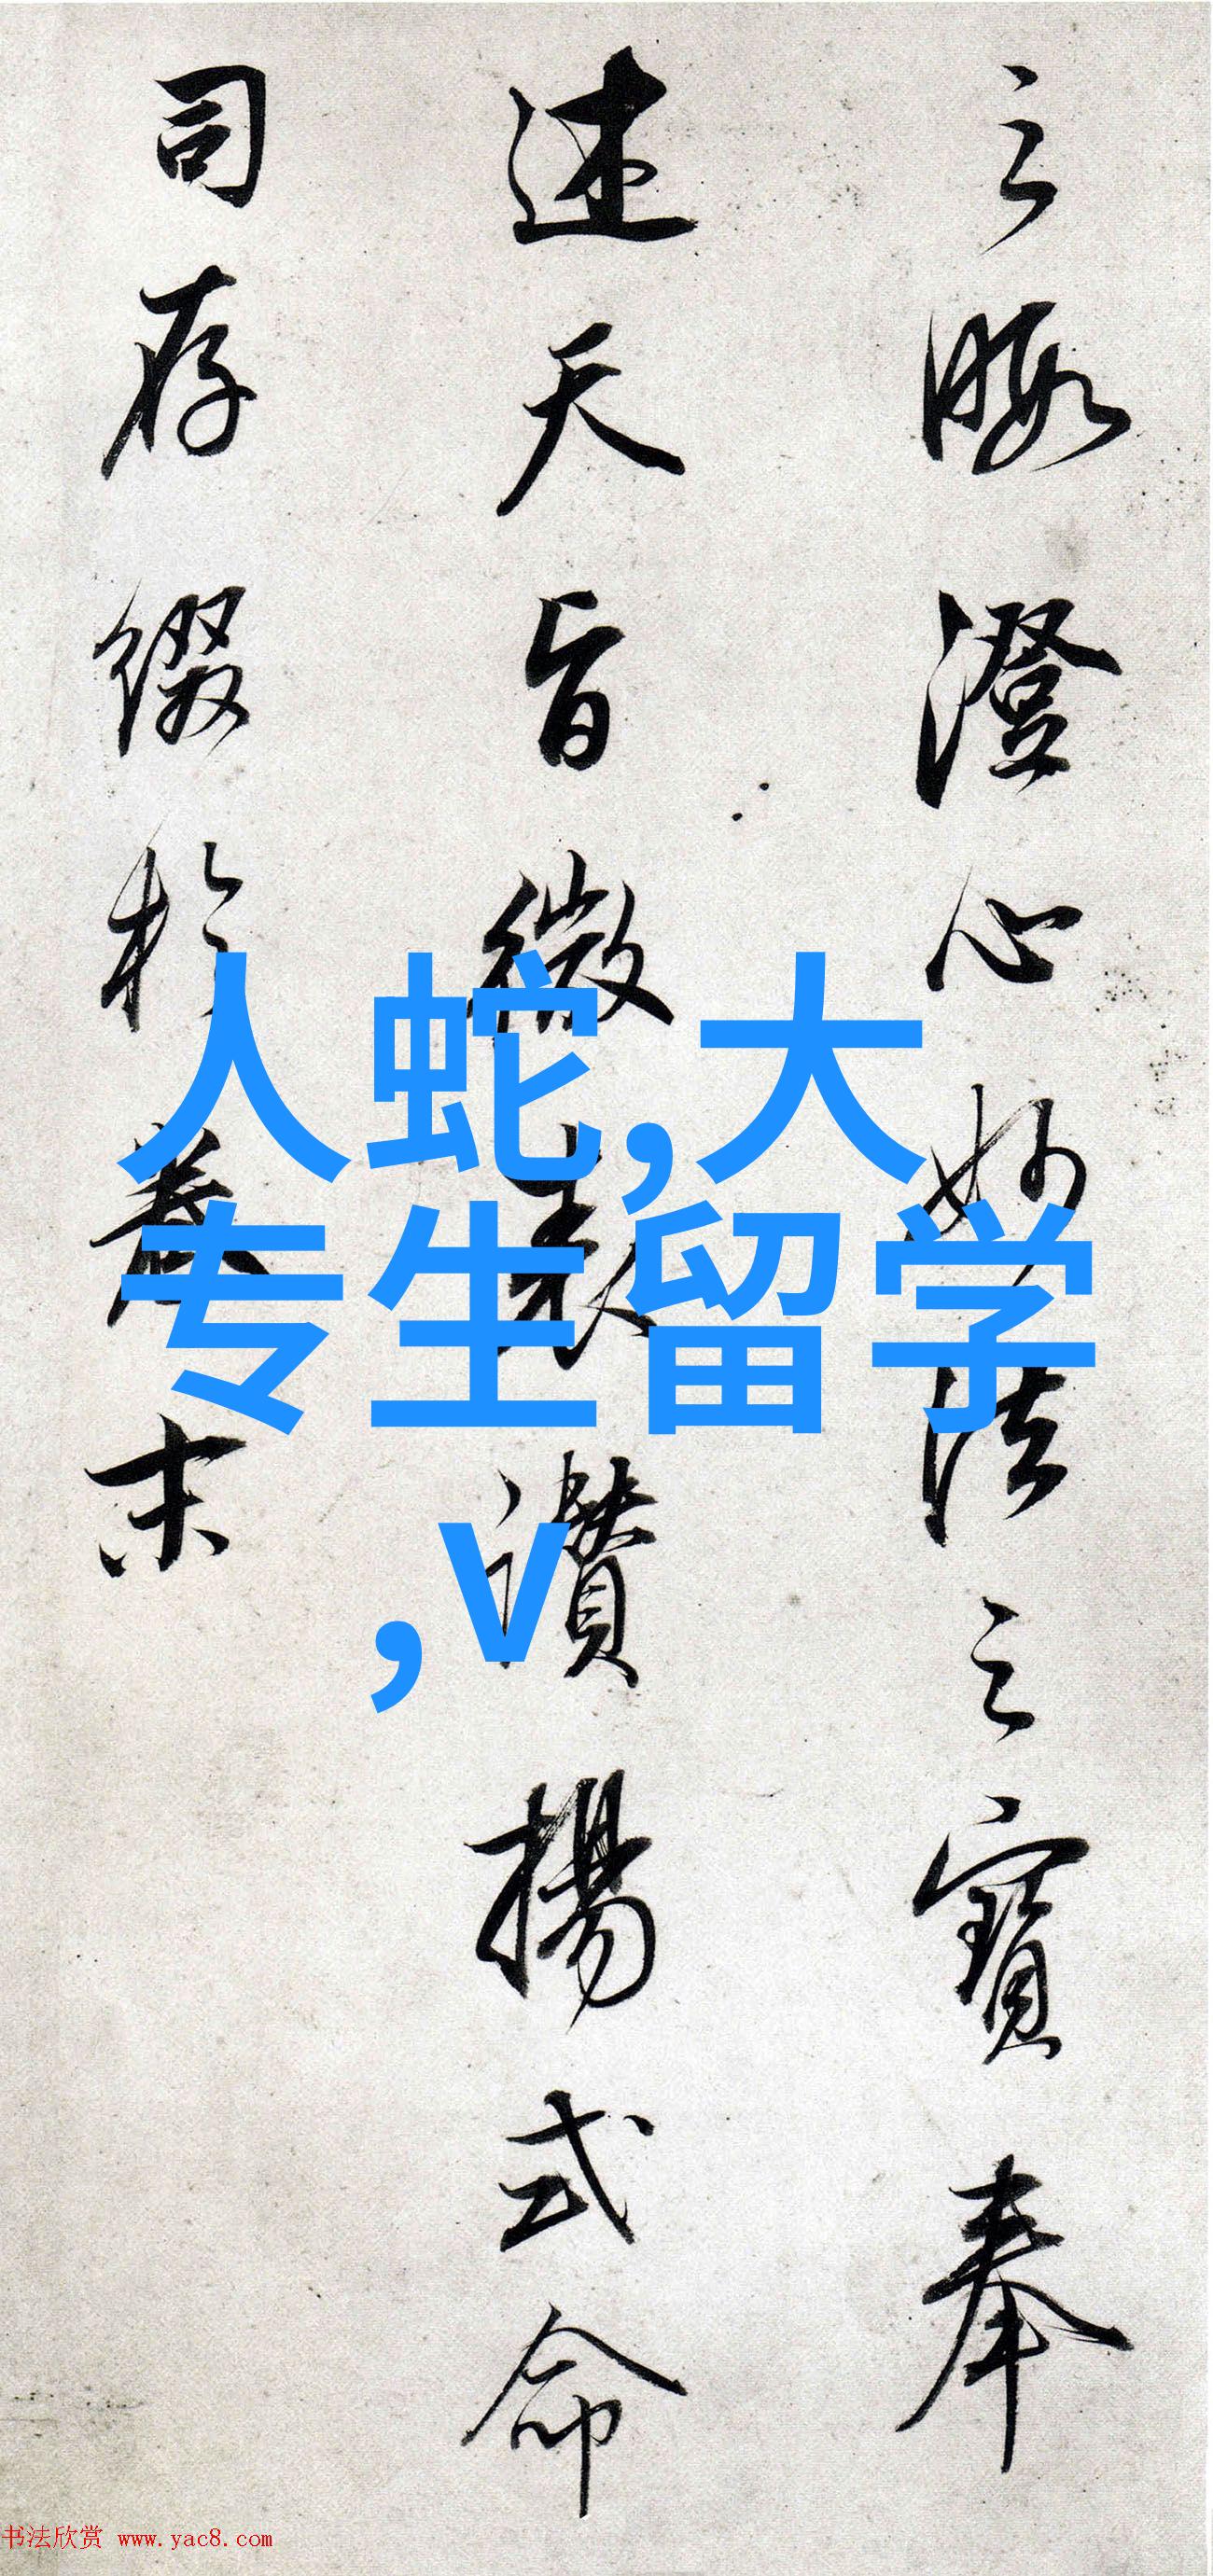 之暇澄心妙法之寶奉
述天旨微表讚揚式命
司存綴於卷末
人蛇,大
专生留学
,V
书法欣赏 www.yac8.com